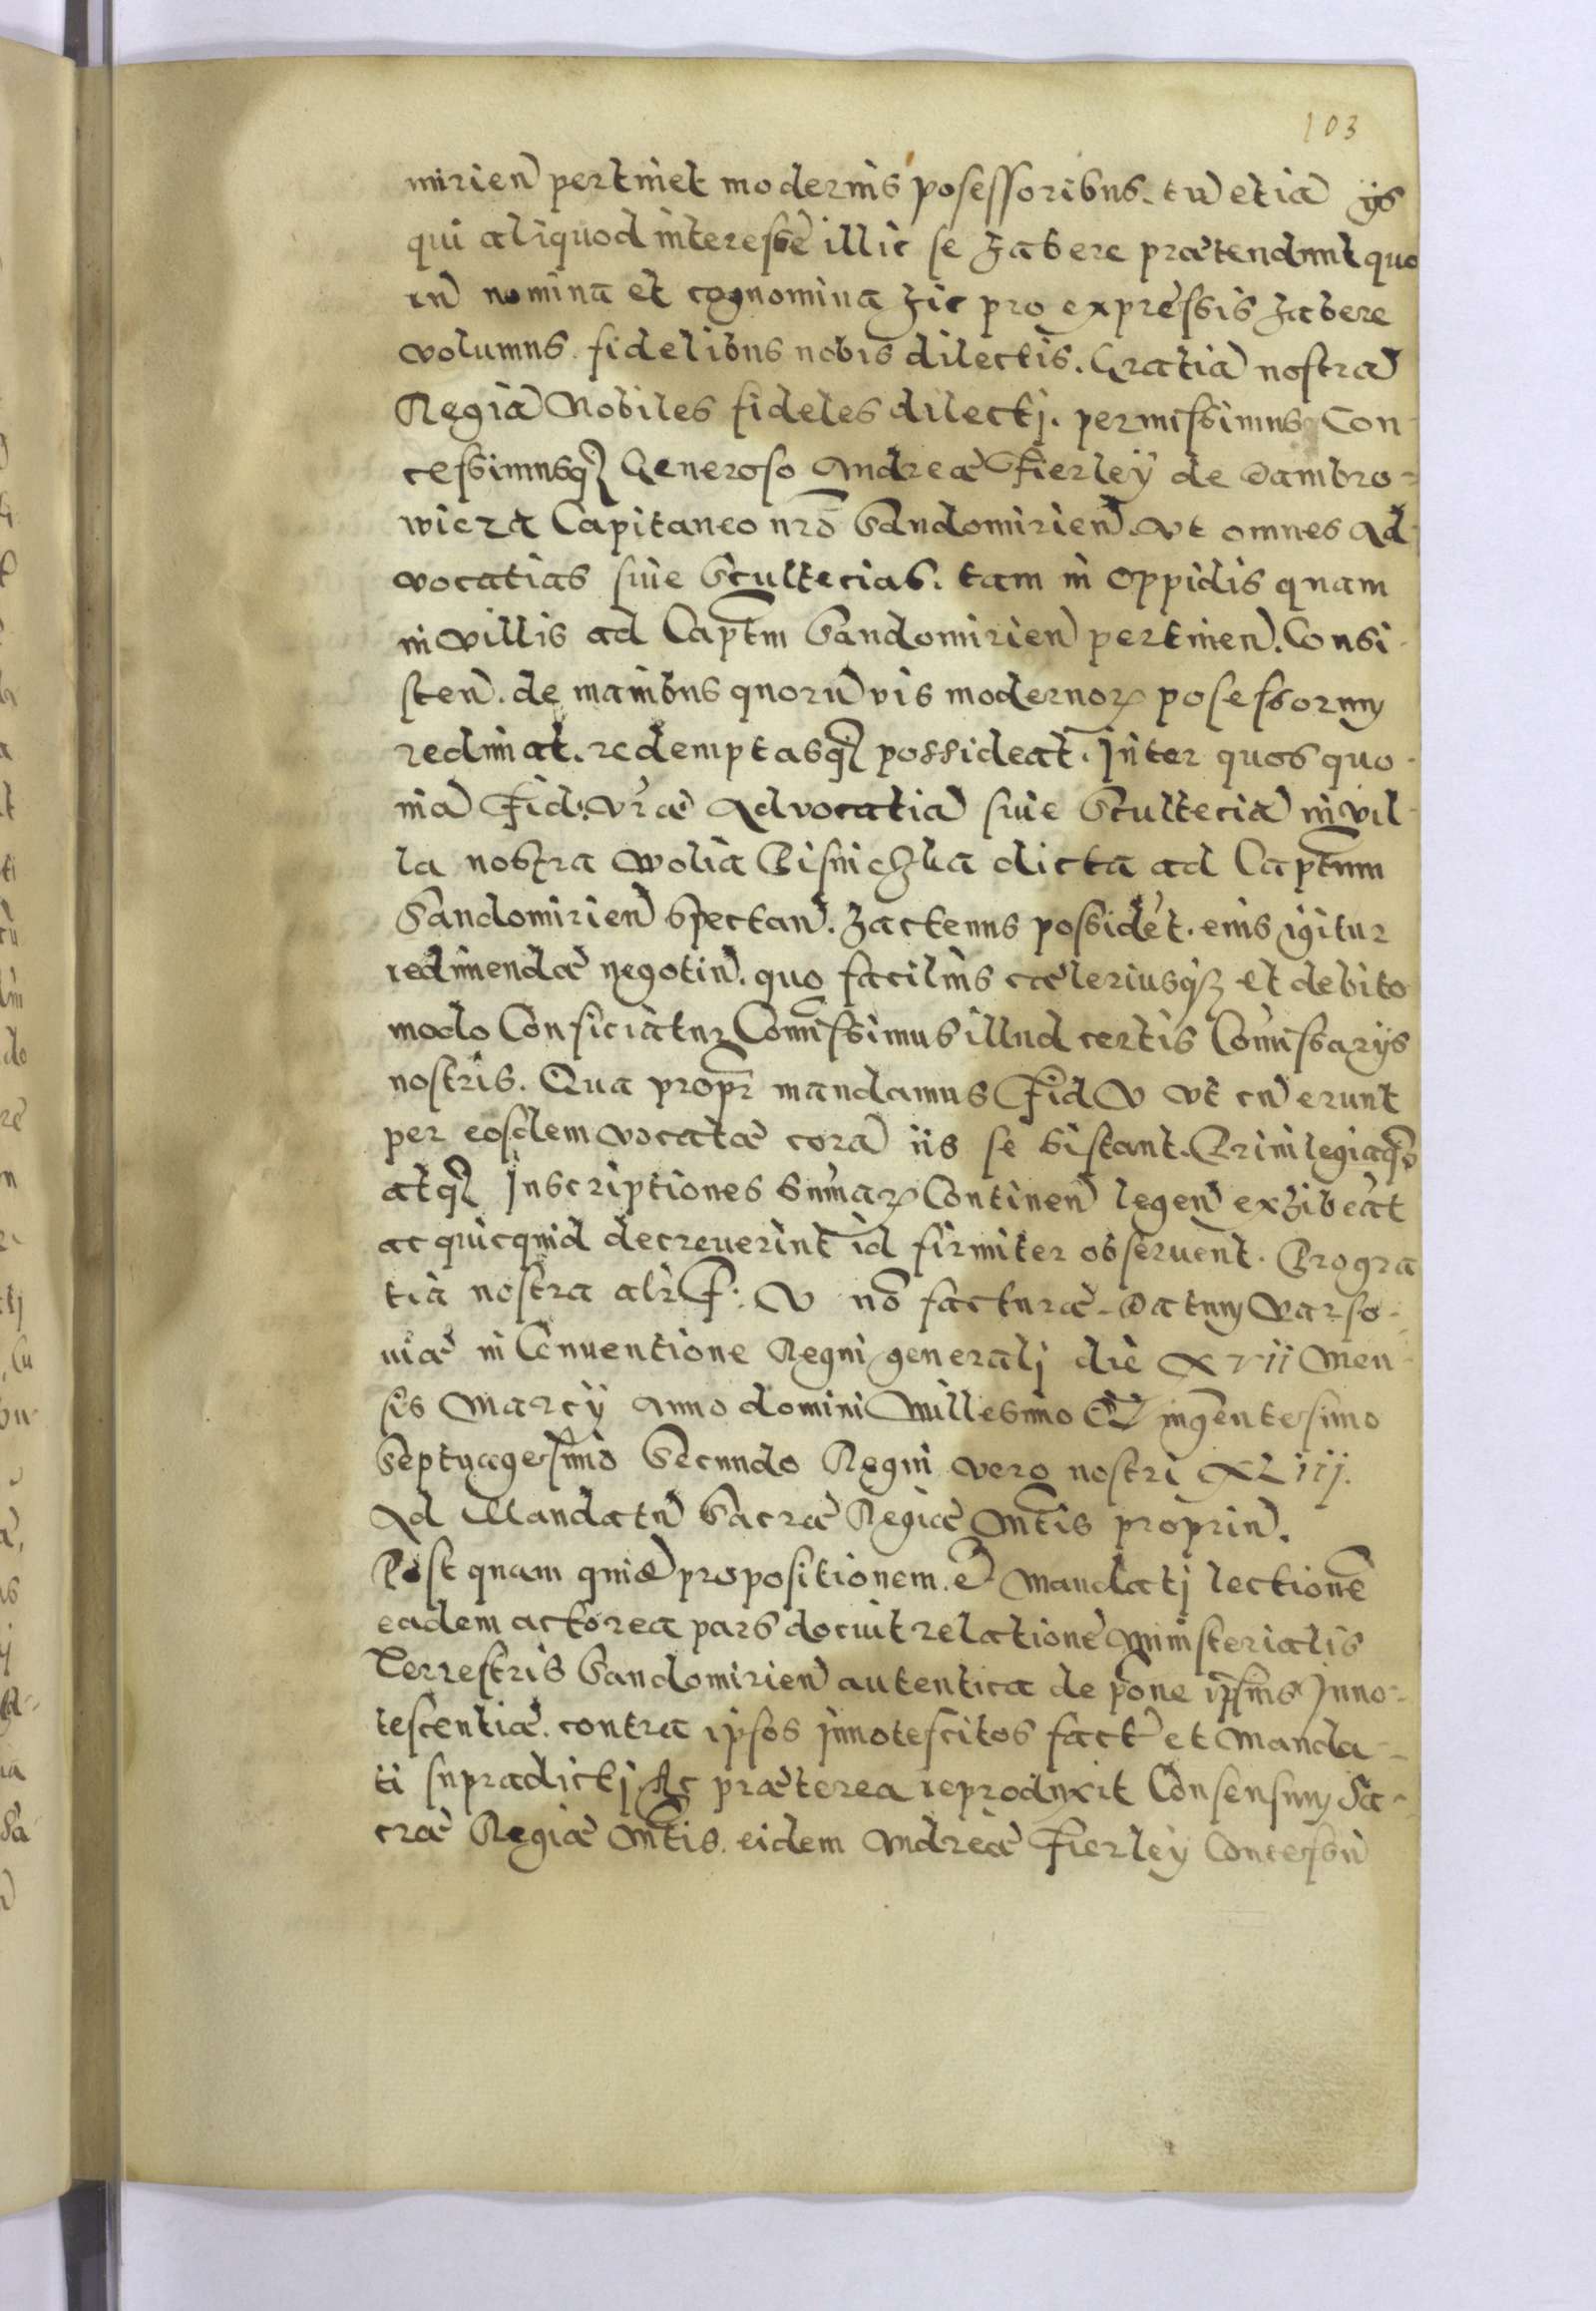 103
mirien pertinet modernis posessoribus. tu etia ijs
qui aliquod interesse illic se habere prætendunt quo
rū nomina et cognomina hic pro expressis habere
volumus. fidelibus nobis dilectis. Gratiā nostrā
Regiā Nobiles fideles dilectj. permissimus Con-
cessimusq; Generoso Andreæ Fierleÿ de Dambro-
wicza Capitaneo nrō Sandomirien. vt omnes Ad-
vocatias siue Scultecias. tam in Oppidis quam
in villis ad Captm Sandomirien pertinen. Consi-
sten. de manibus quorūvis modernor posessorum
redimat. redemptasq; possideat. Inter quos quo-
niā Fid: Vræ Advocatiā siue Scultecià in vil-
la nostra Wolia dicta ad Captum
Sandomirien Spectan. hactenus possidēt. eius igitur
redimendæ negotiū. quo facilius cæleriusq; et debito
modo Conficiatur Comissimus illud certis Comissarijs
nostris. Qua propr mandamus Fid V vt cū erunt
per eosdem vocatæ corā iis se sistant. Priuilegiaq;
atq; Inscriptiones Sumar Continen legen exhibeāt
ac quicquid decreuerint id firmiter obseruent. Pro gra
tia nostra alr F: V nō facturæ. Datum Varso-
uiæ in Conuentione Regni generalj die XVII Men-
sis Marcÿ Anno domini Millesimo Quingentesimo
Septuagesimo Secundo Regni vero nostri XLIIJ.
Ad Mandatū Sacræ Regiæ Mtis propriū.
Post quam quidē propositionem. et Mandatj lectionē
eadem actorea pars docuit relatione Ministerialis
Terrestris Sandomirien autentica de pōne ipsius Inno-
tescentiæ. contra ipsos Innotescitos fact et Manda-
ti supradictj. Ac præterea reproduxit Consensum Sa-
cræ Regiæ Mtis. eidem Andreæ Fierleÿ Concessū